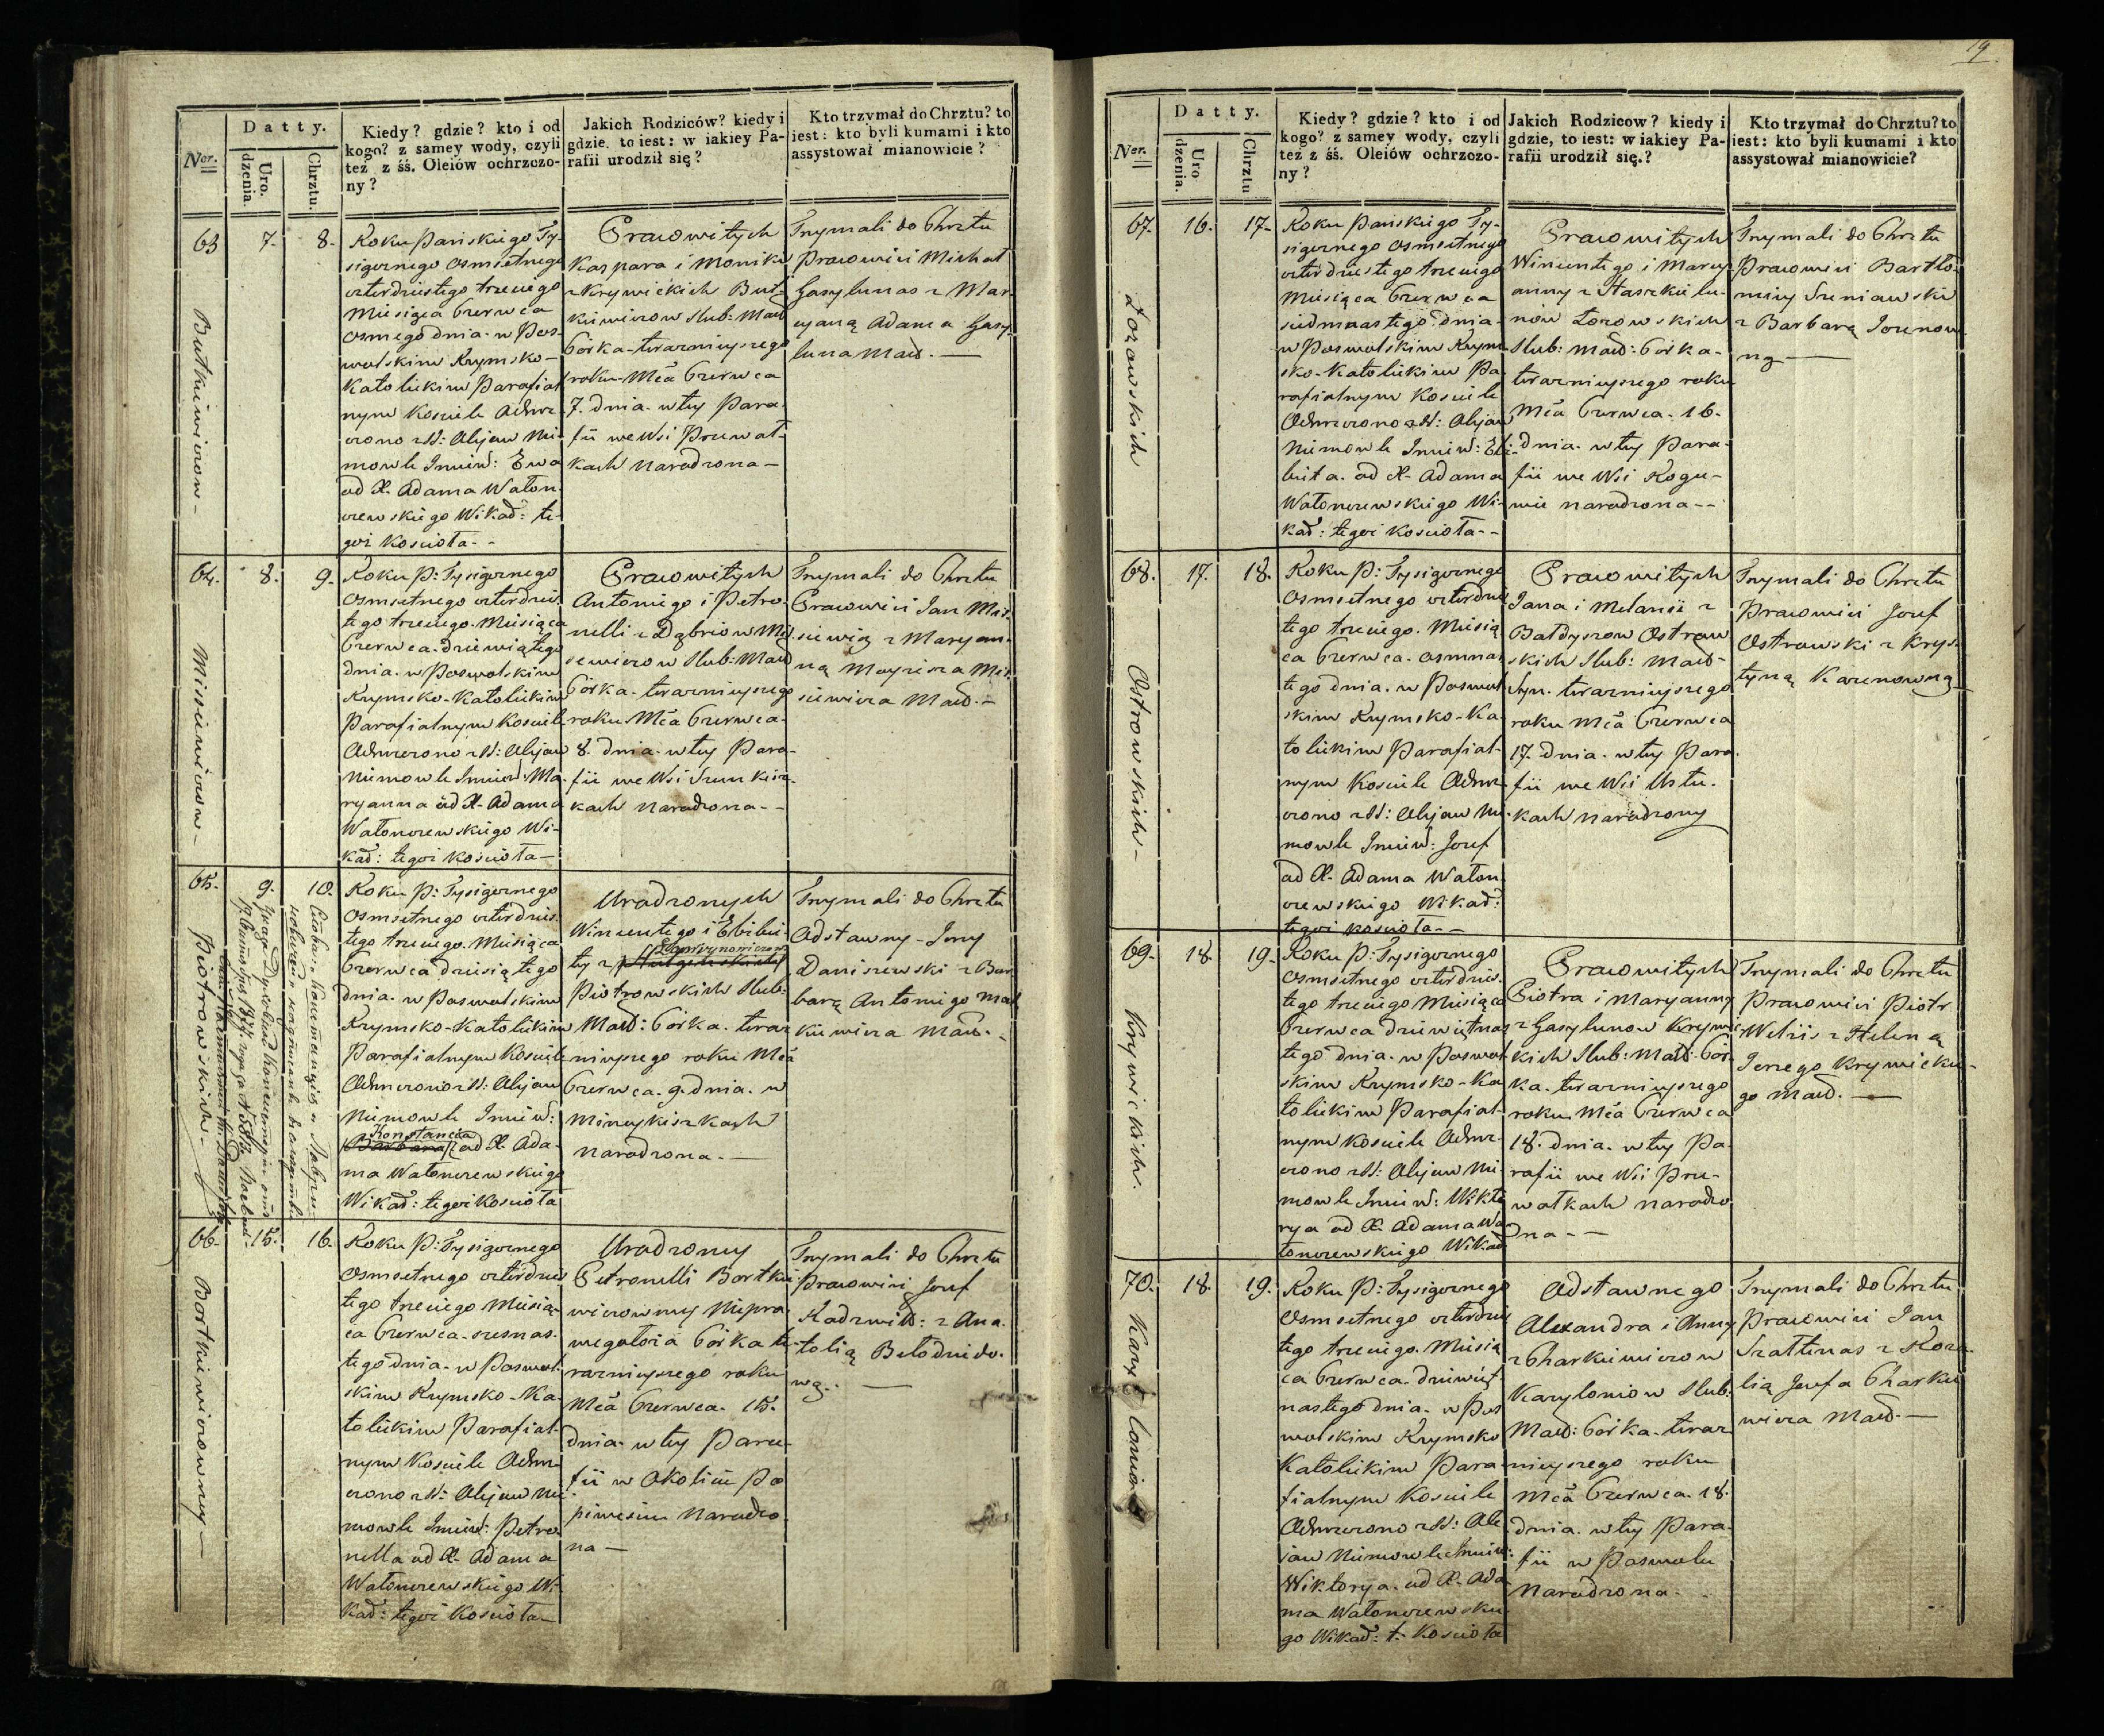 Ner.
Datty.
Uro.
dzenia.
Chrztu.
Kiedy? gdzie? kto i od
kogo? z samey wody, czyli
też z śś. Oleiów ochrzczo-
ny?
Jakich Rodziców? kiedy i
gdzie, to iest: w iakiey Pa-
rafii urodził się?
Kto trzymał do Chrztu? to
iest: kto byli kumami i kto
assystował mianowicie?
63
Butkiewiczow-
7.
8.
Roku Pańskiego Ty-
siącznego osmsetnego
czterdziestego trzeciego
Miesiąca Czerwca
osmego dnia w Pos-
wolskim Rzymsko-
Katolickim Parafial
nym Kosciele Ochrz-
czono z SS: Olejow Nie-
mowle Imien: Ewa
od X. Adama Waton-
czewskiego Wikar: te-
goż Kościoła--
Prawowitych
Kaspra i Moniki
z Krzywickich But-
kiewiczow Slub: Małż
Córka teraznieyszego
roku Mca Czerwca
7. dnia w tey Para-
fii we Wsi Przewał-
kach narodzona-
Trzymali do Chrztu
Prawowici Michał
Gasylunas z Mar-
cyaną Adama Gasy-
luna Małż.-
64.
Missiewiczow-
8.
9.
Roku P: Tysiącznego
Osmsetnego czterdzies-
tego trzeciego Miesiąca
Czerwca dziewiątego
dnia w Poswolskim
Rzymsko-Katolickim
Parafialnym Kosciele
Ochrzczono z SS: Olejow
Niemowle Imien: Ma-
ryanna od X. Adama
Watonczewskiego Wi-
kar: tegoż Kościoła-
Prawowitych
Antoniego i Petro-
nelli z Dąbriow Mis-
siewiczow Slub: Małż
Córka teraznieyszego
roku Mca Czerwca
8. dnia w tey Para-
fii we Wsi Szunkisz-
kach narodzona--
Trzymali do Chrztu
Prawowici Jan Mis-
siewicz z Maryan-
ną Moyżesza Mis-
siewicza Małż.-
65.
Piotrowskich-
9.
10.
Roku P: Tysiącznego
Osmsetnego czterdzies-
tego trzeciego Miesiąca
Czerwca dziesiątego
dnia w Poswolskim
Rzymsko-Katolickim
Parafialnym Kosciele
Ochrzczono z SS: Olejow
Niemowle Imien:
Konstancia
Barbara od X. Ada-
ma Watonczewskiego
Wikar: tegoż Kościoła
Urodzonych
Wincentego i Elżbie-
ty z
Piotrowskich Slub:
Małż: Córka teraz
nieyszego roku Mca
Czerwca 9. dnia w
Mineykiszkach
narodzona.-
Trzymali do Chrztu
Odstawny-Jerzy
Daniszewski z Bar-
barą Antoniego Mac
kiewicza Małż.
66.
Bortkiewiczowny-
15.
16.
Roku P: Tysiącznego
Osmsetnego czterdzies
tego trzeciego Miesią-
ca Czerwca szesnas-
tego dnia w Poswol-
skim Rzymsko-Ka-
tolickim Parafial-
nym Kosciele Ochrz-
czono z SS: Olejow Nie-
mowle Imien: Petro-
nella od X. Adama
Watonczewskiego Wi-
kar: tegoż Kościoła-
Urodzoney
Petronelli Bortkie-
wiczowney Niepra-
wegołoża Córka te-
raznieyszego roku
Mca Czerwca 15.
dnia w tey Para-
fii w Okolicie Po
piwesiu Narodzo-
na-
Trzymali do Chrztu
Prawowici Jozef
Radziwiłł: z Ana-
tolią
-
19.
Ner.
Datty.
Uro
dzenia.
Chrztu
Kiedy? gdzie? kto i od
kogo? z samey wody, czyli
też z śś. Oleiów ochrzczo-
ny?
Jakich Rodziców? kiedy i
gdzie, to iest: w iakiey Pa-
rafii urodził się.?
Kto trzymał do Chrztu? to
iest: kto byli kumami i kto
assystował mianowicie?
67.
Łozowskich
16.
17.
Roku Pańskiego Ty-
siącznego Osmsetnego
czterdziestego trzeciego
Miesiąca Czerwca
siedmnastego dnia
w Poswolskim Rzym
sko-Katolickim Pa-
rafialnym Kosciele
Ochrzczono z SS: Olejow
Niemowle Imien: Elż-
bieta od X. Adama
Watonczewskiego Wi-
kar: tegoż Kościoła--
Prawowitych
Wincentego i Mary-
anny z Staszkielu-
now Łozowskich
Slub: Małż: Córka
teraznieyszego roku
Mca Czerwca 16.
dnia w tey Para-
fii we Wsi Rogu-
wie narodzona--
Trzymali do Chrztu
Prawowici Bartło-
miey Szeniawski
z Barbarą Jozenow-
ną-
68.
Ostrowskich-
17.
18.
Roku P: Tysiącznego
Osmsetnego czterdzies
tego trzeciego Miesią
ca Czerwca osmnas
tego dnia w Poswol
skim Rzymsko-Ka
tolickim Parafial-
nym Kosciele Ochrz
czono z SS: Olejow Nie-
mowle Imien: Jozef
od X. Adama Waton-
czewskiego Wikar:
tegoż Kościoła--
Prawowitych
Jana i Melanii z
Bałdyszow Ostrow
skich Slub: Małż-
Syn teraznieyszego
roku Mca Czerwca
17. dnia w tey Para-
fii we Wsi Ustu-
kach narodzony
Trzymali do Chrztu
Prawowici Jozef
Ostrowski z Krys-
tyną Karenowną
69.
Krywickich.
18.
19.
Roku P: Tysiącznego
Osmsetnego czterdzies-
tego trzeciego Miesiąca
Czerwca dziewiętnas
tego dnia w Poswol
skim Rzymsko-Ka
tolickim Parafial-
nym Kosciele Ochrz-
czono z SS: Olejow Nie-
mowle Imien: Wikto
rya od X. Adama Wa-
tonczewskiego Wikar
Prawowitych
Piotra i Maryanny
z Gasylunow Krywic
kich Slub: Małż: Cór-
ka teraznieyszego
roku Mca Czerwca
18. dnia w tey Pa-
rafii we Wsi Prze-
wałkach narodzo
na--
Trzymali do Chrztu
Prawowici Piotr
Welżis z Heleną
Jerzego Krywickie-
go Małż.-
70.
18.
19.
Roku P: Tysiącznego
Osmsetnego czterdzies
tego trzeciego Miesią
ca Czerwca dziewięt-
nastego dnia w Pos
wolskim Rzymsko
Katolickim Para-
fialnym Kosciele
Ochrzczono z SS: Ole
jow Niemowle Imien:
Wiktorya od X. Ada
ma Watonczewskie-
go Wikar: t. Kościoła
Odstawnego
Alexandra i Anny
z Charkiewiczow
Karyloniow Slub:
Małż: Córka teraz
nieyszego roku
Mca Czerwca 18.
dnia w tey Para-
fii w Poswolu
Narodzona.
Trzymali do Chrztu
Prawowici Jan
Szattenas z Roza-
lią Jozefa Charkie
wicza Małż.-